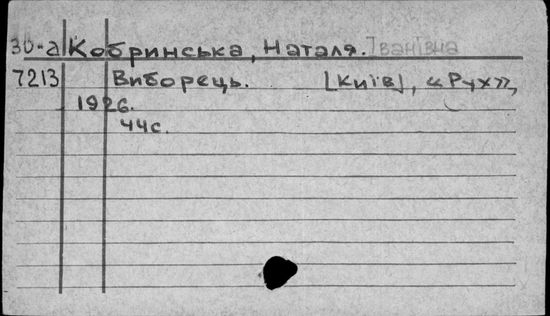 30-а Кобринська, Наталя. Іванівна
7213 Виборець. [Київ], «Рух»,
1926.
44с.